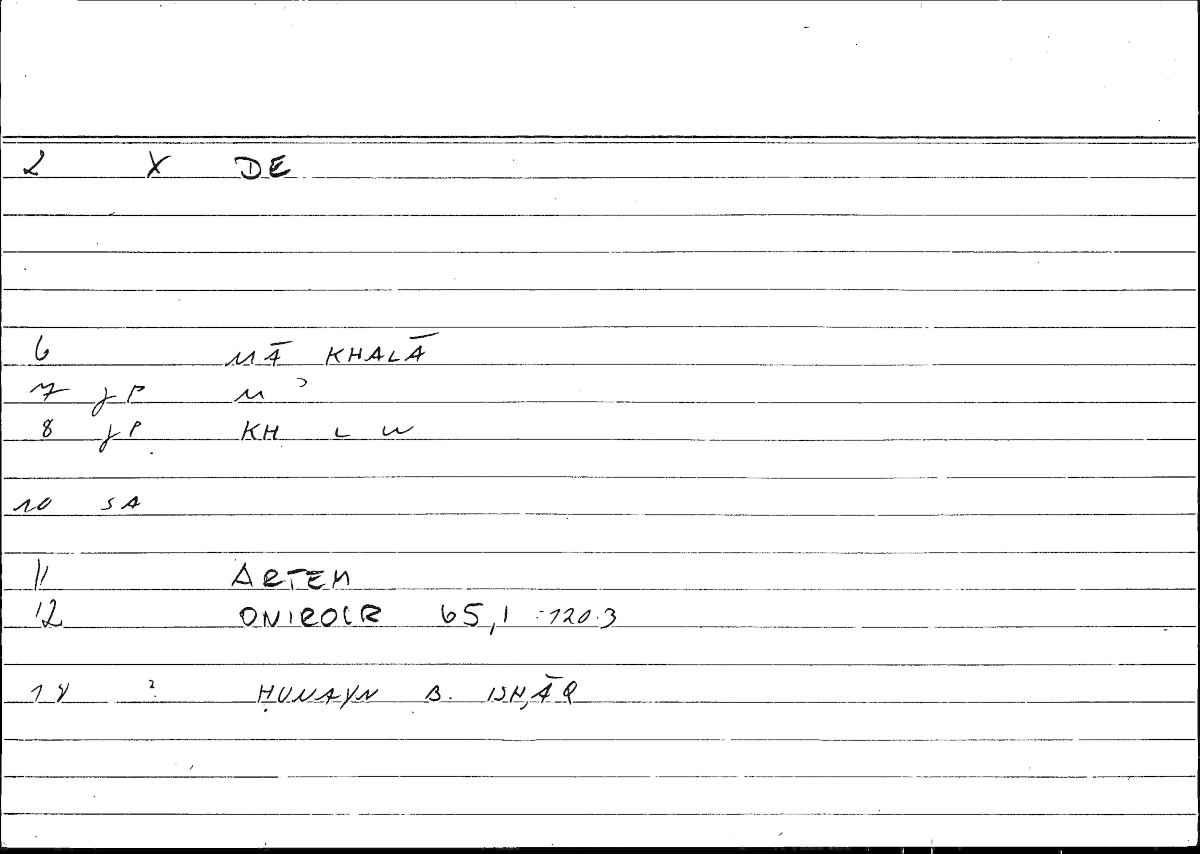 2 X DE
6 MĀ KHALĀ
7 JP M ʾ
8 JP KH L W
10 SA
11 ARTEM
12 ONIROCR 65,1 :120.3
18 ? ḤUNAYN B. ISḤĀQ